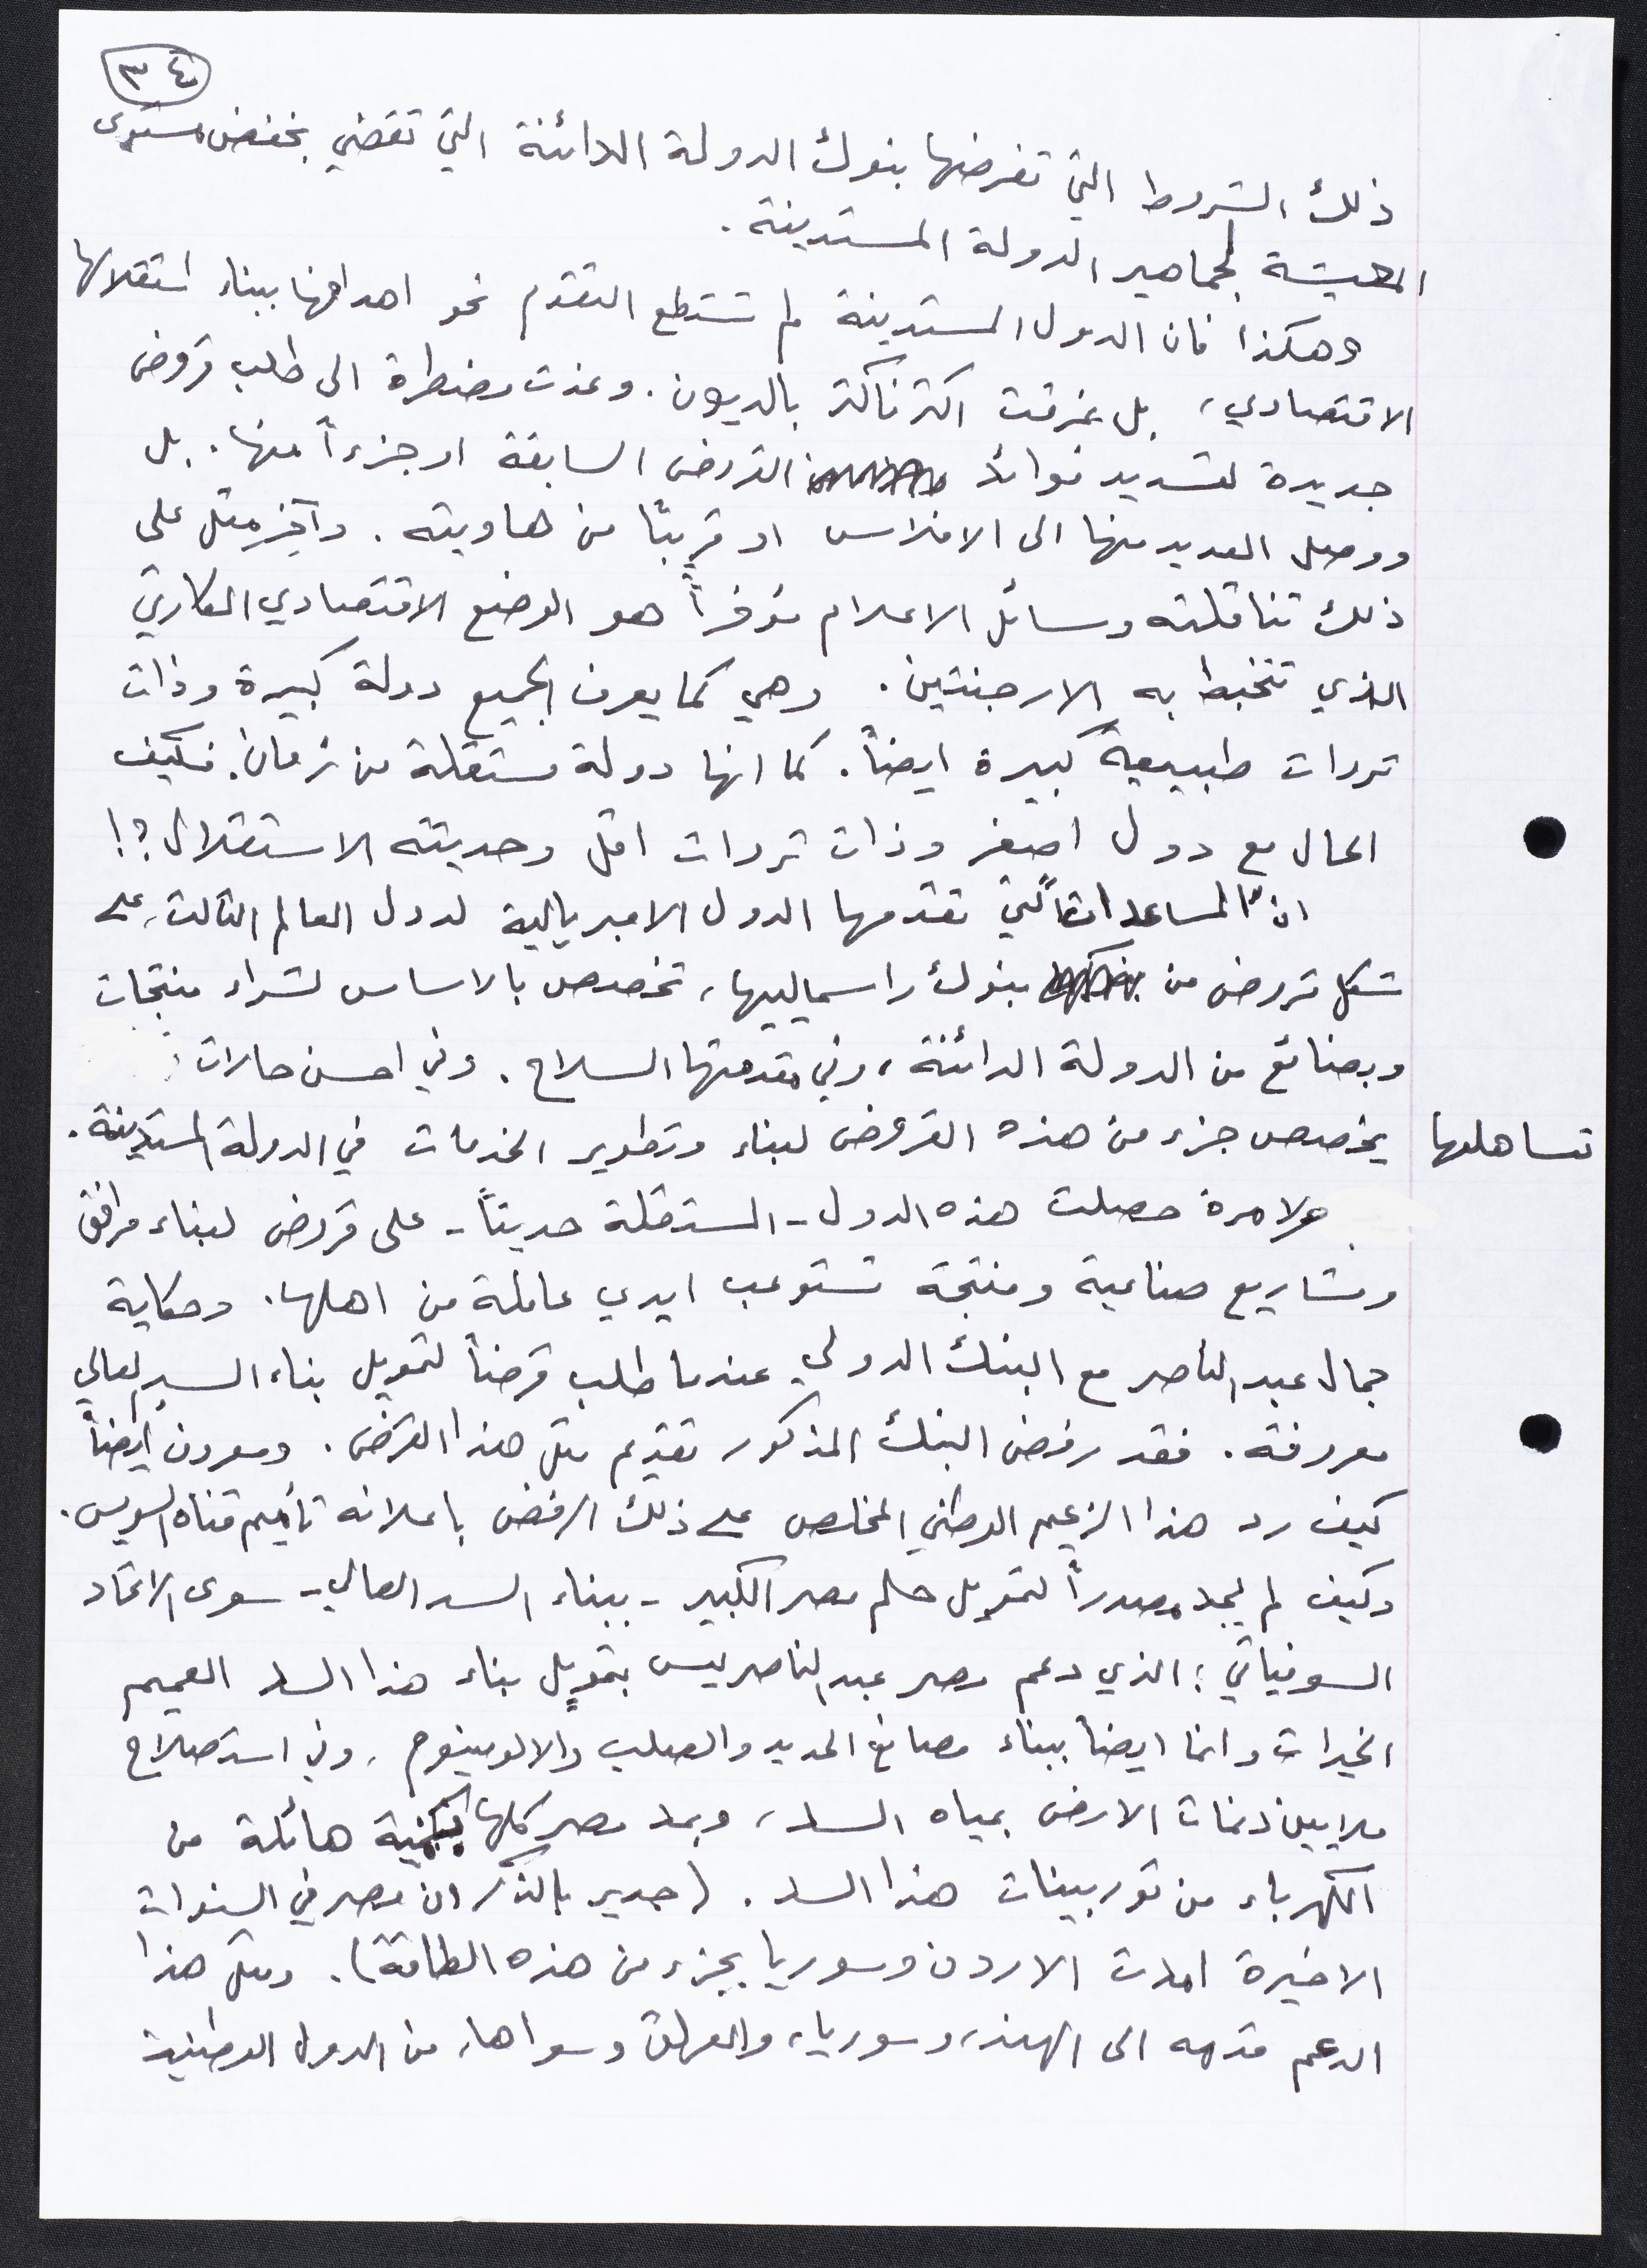 ٣٤
ذلك الشروط التي تفرضها بنوك الدولة الدائنة التي تقضي بخفض مستوى
المعيشة لجماهير الدولة المستدينة.
وهكذا فان الدول المستدينة لم تستطع التقدم نحو اهدافها ببناء استقلالها
الاقتصادي، بل غرقت اكثر فاكثر بالديون. وغدت مضطرة الى طلب قروض
جديدة لتسديد فوائد القروض السابقة او جزءاً منها. بل
ووصل العديد منها الى الافلاس او قريباً من هاويته. وآخر مثل على
ذلك تناقلته وسائل الاعلام مؤخراً هو الوضع الاقتصادي الكارثي
الذي تتخبط به الارجنتين. وهي كما يعرف الجميع دولة كبيرة وذات
ثروات طبيعية كبيرة ايضاً. كما انها دولة مستقلة من زمان. فكيف
الحال مع دول اصغر وذات ثروات اقل وحديثة الاستقلال؟!
انّ المساعدات التي تقدمها الدول الامبريالية لدول العالم الثالث، على
شكل قروض من بنوك راسمالييها، تخصص بالاساس لشراء منتجات
وبضائع من الدولة الدائنة، وفي مقدمتها السلاح. وفي احسن حالات
تساهلها يخصص جزء من هذه القروض لبناء وتطوير الخدمات في الدولة المستدينة.
ولا مرة حصلت هذه الدول - المستقلة حديثاً - على قروض لبناء مرافق
ومشاريع صناعية ومنتجة تستوعب ايدي عاملة من اهلها. وحكاية
جمال عبد الناصر مع البنك الدولي عندما طلب قرضاً لتمويل بناء السد العالي
معروفة. فقد رفض البنك المذكور تقديم مثل هذا القرض. ومعروف ايضاً
كيف رد هذا الزعيم الوطني المخلص على ذلك الرفض باعلانه تأميم قناة السويس.
وكيف لم يجد مصدراً لتمويل حلم مصر الكبير - ببناء السد العالي - سوى الاتحاد
السوفياتي؛ الذي دعم مصر عبد الناصر ليس بتمويل بناء هذا السد العميم
الخيرات وانما ايضاً ببناء مصانع الحديد والصلب والالومينوم، وفي استصلاح
ملايين دنمات الارض بمياه السد، وبمد مصر كلها بكمية هائلة من
الكهرباء من توربينات هذا السد. (جدير بالذكر ان مصر في السنوات
الاخيرة امدت الاردن وسوريا بجزء من هذه الطاقة). ومثل هذا
الدعم قدمه الى الهند، وسوريا، والعراق وسواها، من الدول الوطنية